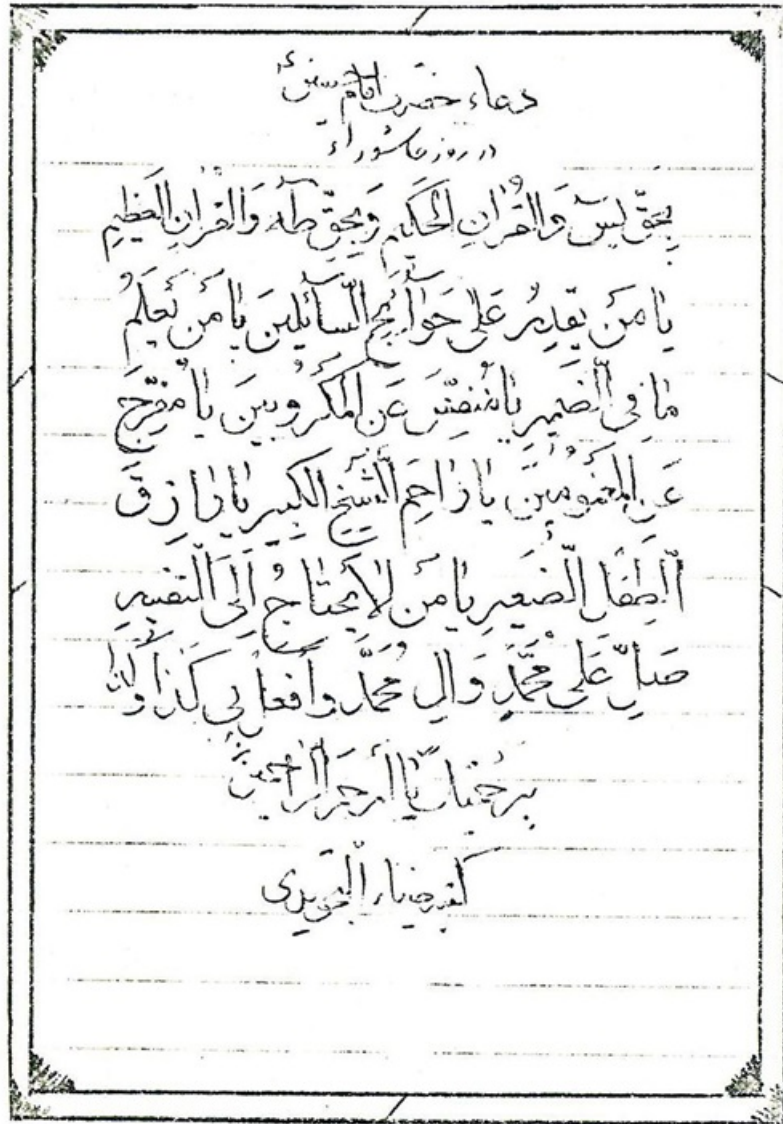 دعاء حضرت امام حسین ع
در روز عاشوراء
بِحَقِّ یٰسٓ وَالْقُرْاٰنِ الْحَکیٖمِ وَبِحَقِّ طٰهٰ وَالْقُرْاٰنِ الْعَظیٖمِ
یٰا مَنْ یَقْدِرُ عَلیٰ حَوٰآئِجِ السّٰآئِلیٖنَ یٰا مَنْ یَعْلَمُ
مٰا فِی الضَّمیٖرِ یٰا مُنَفِّسَ عَنِ الْمَکْرُوبیٖنَ یٰا مُفَرِّجَ
عَنِ الْمَغْمُومیٖنَ یٰا رٰاحِمَ الشَّیْخِ الْکَبیٖرِ یٰا رٰازِقَ
الطِّفْلِ الصَّغیٖرِ یٰا مَنْ لٰا یَحْتٰاجُ اِلَی التَّفْسیٖرِ
صَلِّ عَلیٰ مُحَمَّدٍ وَاٰلِ مُحَمَّدٍ وَافْعَلْ بیٖ کَذٰا وَکَذٰا
بِرَحْمَتِکَ یٰا اَرْحَمَ الرّٰاحِمیٖنَ
کتبه ضیاء التجویدی